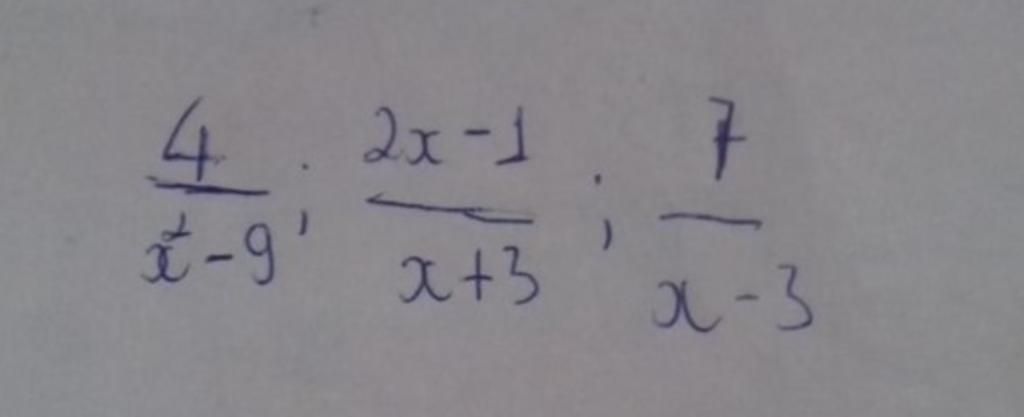 4/(x²-9) ; (2x-1)/(x+3) ; 7/(x-3)